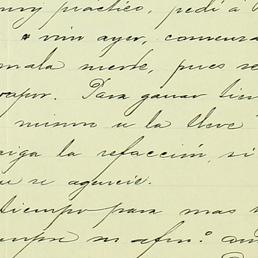 muy practico, pedí á
vino ayer, comenza
mala suerte, pues se
vapor. Para ganar tiem
mismo u la lleve
aiga la refacción, si
ue se agencie.
tiempo para mas
empre su afmo.